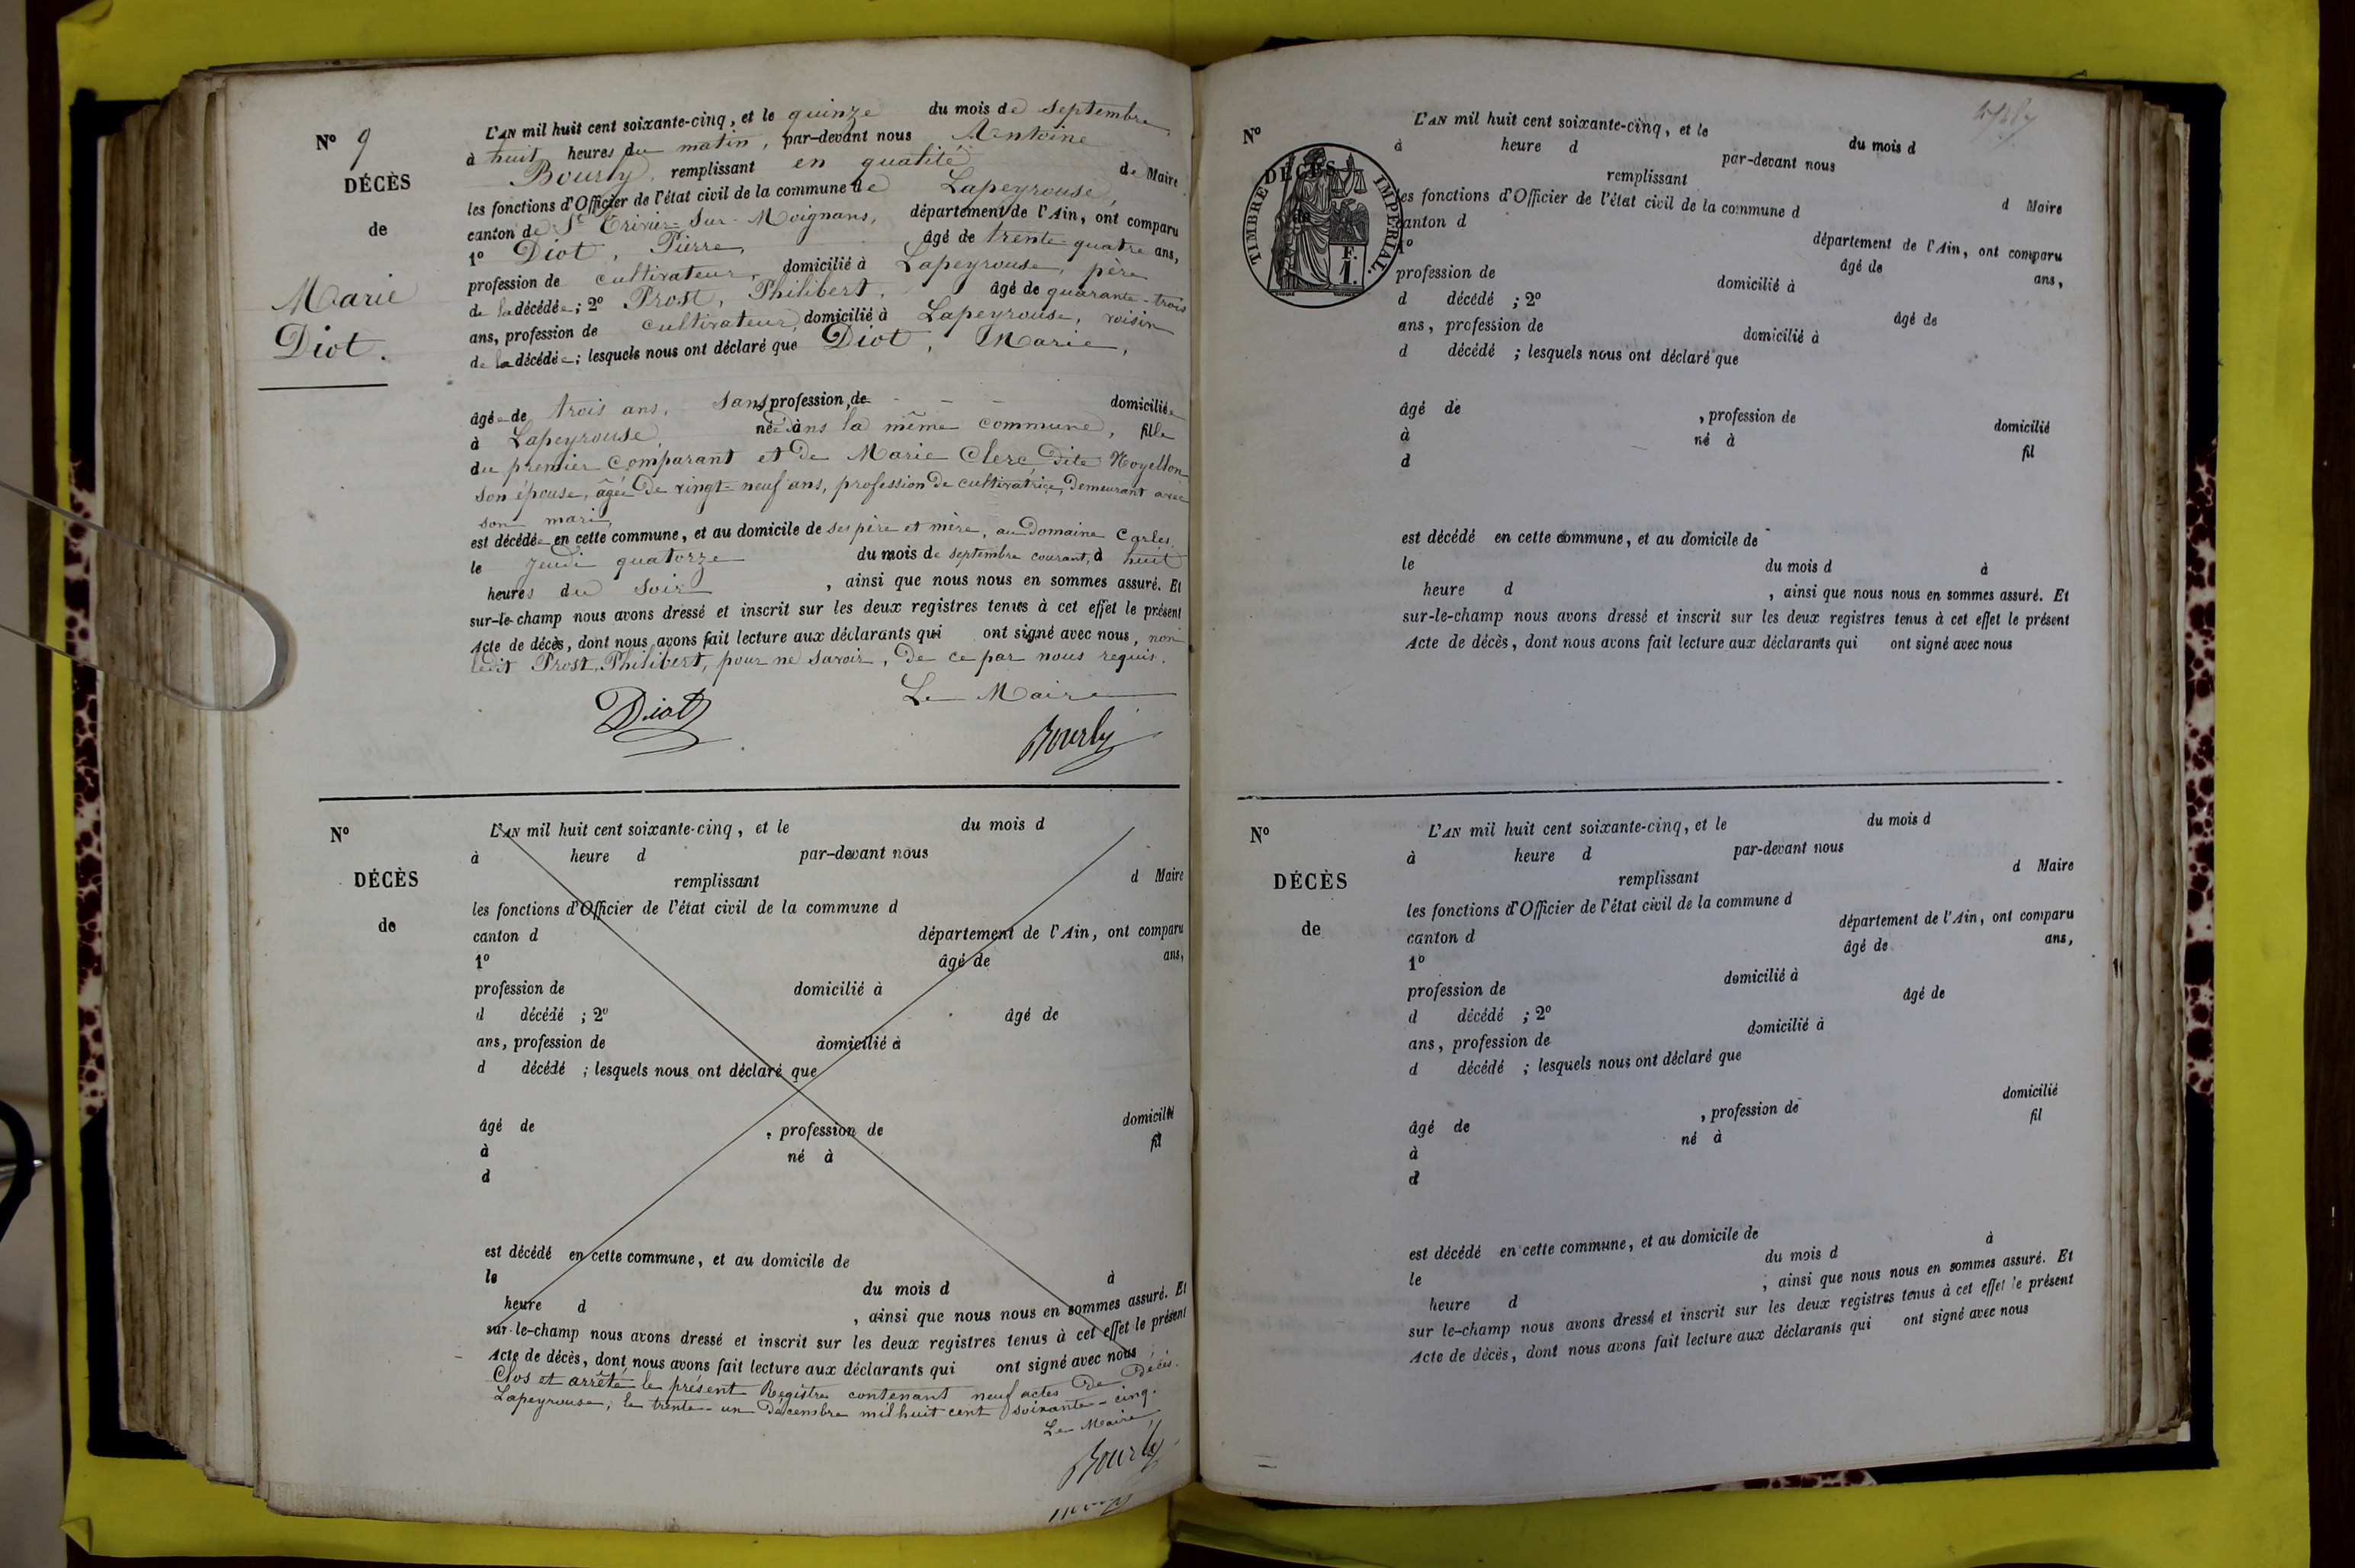 N° 9
DÉCÈS
de
Marie
Diot.
L'AN mil huit cent soixante-cinq, et le quinze du mois de Septembre,
à huit heures du matin, par-devant nous Antoine
Bourly, remplissant en qualité de Maire
les fonctions d'Officier de l'état civil de la commune de Lapeyrouse,
canton de St Trivier-Sur-Moignans, département de l'Ain, ont comparu
1° Diot, Pierre, âgé de trente-quatre ans,
profession de cultivateur, domicilié à Lapeyrouse, père
de la décédée; 2° Prost, Philibert, âgé de quarante-trois
ans, profession de cultivateur, domicilié à Lapeyrouse, voisin
de la décédée; lesquels nous ont déclaré que Diot, Marie,
âgée de trois ans, sans profession, de - - - domiciliée
à Lapeyrouse, née dans la même commune, fille
du premier Comparant et de Marie Clerc, dite Noyelton
son épouse, âgée de vingt-neuf ans, profession de cultivatrice, demeurant avec
son mari,
est décédée en cette commune, et au domicile de ses père et mère, au Domaine Carles,
le jeudi quatorze du mois de septembre courant, à huit
heures du soir, ainsi que nous nous en sommes assuré. Et
sur-le-champ nous avons dressé et inscrit sur les deux registres tenus à cet effet le présent
Acte de décès, dont nous avons fait lecture aux déclarants qui ont signé avec nous, non
ledit Prost, Philibert, pour ne savoir, de ce par nous requis.
Le Maire
Diot
Bourly
N°
DÉCÈS
de
L'AN mil huit cent soixante-cinq, et le du mois d
à heure d par-devant nous
remplissant d Maire
les fonctions d'Officier de l'état civil de la commune d
canton d département de l'Ain, ont comparu
1° âgé de ans,
profession de domicilié à
d décédé ; 2° âgé de
ans, profession de domicilié à
d décédé ; lesquels nous ont déclaré que
âgé de , profession de domicilié
à né à fil
d
est décédé en cette commune, et au domicile de
le du mois d à
heure d , ainsi que nous nous en sommes assuré. Et
sur-le-champ nous avons dressé et inscrit sur les deux registres tenus à cet effet le présent
Acte de décès, dont nous avons fait lecture aux déclarants qui ont signé avec nous
Clos et arrêté le présent Registre contenant neuf actes de Décès.
Lapeyrouse, le trente-un Décembre mil huit cent soixante-cinq.
Le Maire,
Bourly
N°
DÉCÈS
de
TIMBRE IMPERIAL.
F.
1.
L'AN mil huit cent soixante-cinq, et le du mois d
à heure d par-devant nous
remplissant d Maire
les fonctions d'Officier de l'état civil de la commune d
canton d département de l'Ain, ont comparu
1° âgé de ans,
profession de domicilié à
d décédé ; 2° âgé de
ans, profession de domicilié à
d décédé ; lesquels nous ont déclaré que
âgé de , profession de domicilié
à né à fil
d
est décédé en cette commune, et au domicile de
le du mois d à
heure d , ainsi que nous nous en sommes assuré. Et
sur-le-champ nous avons dressé et inscrit sur les deux registres tenus à cet effet le présent
Acte de décès, dont nous avons fait lecture aux déclarants qui ont signé avec nous
N°
DÉCÈS
de
L'AN mil huit cent soixante-cinq, et le du mois d
à heure d par-devant nous
remplissant d Maire
les fonctions d'Officier de l'état civil de la commune d
canton d département de l'Ain, ont comparu
1° âgé de ans,
profession de domicilié à
d décédé ; 2° âgé de
ans, profession de domicilié à
d décédé ; lesquels nous ont déclaré que
âgé de , profession de domicilié
à né à fil
d
est décédé en cette commune, et au domicile de
le du mois d à
heure d , ainsi que nous nous en sommes assuré. Et
sur le-champ nous avons dressé et inscrit sur les deux registres tenus à cet effet le présent
Acte de décès, dont nous avons fait lecture aux déclarants qui ont signé avec nous